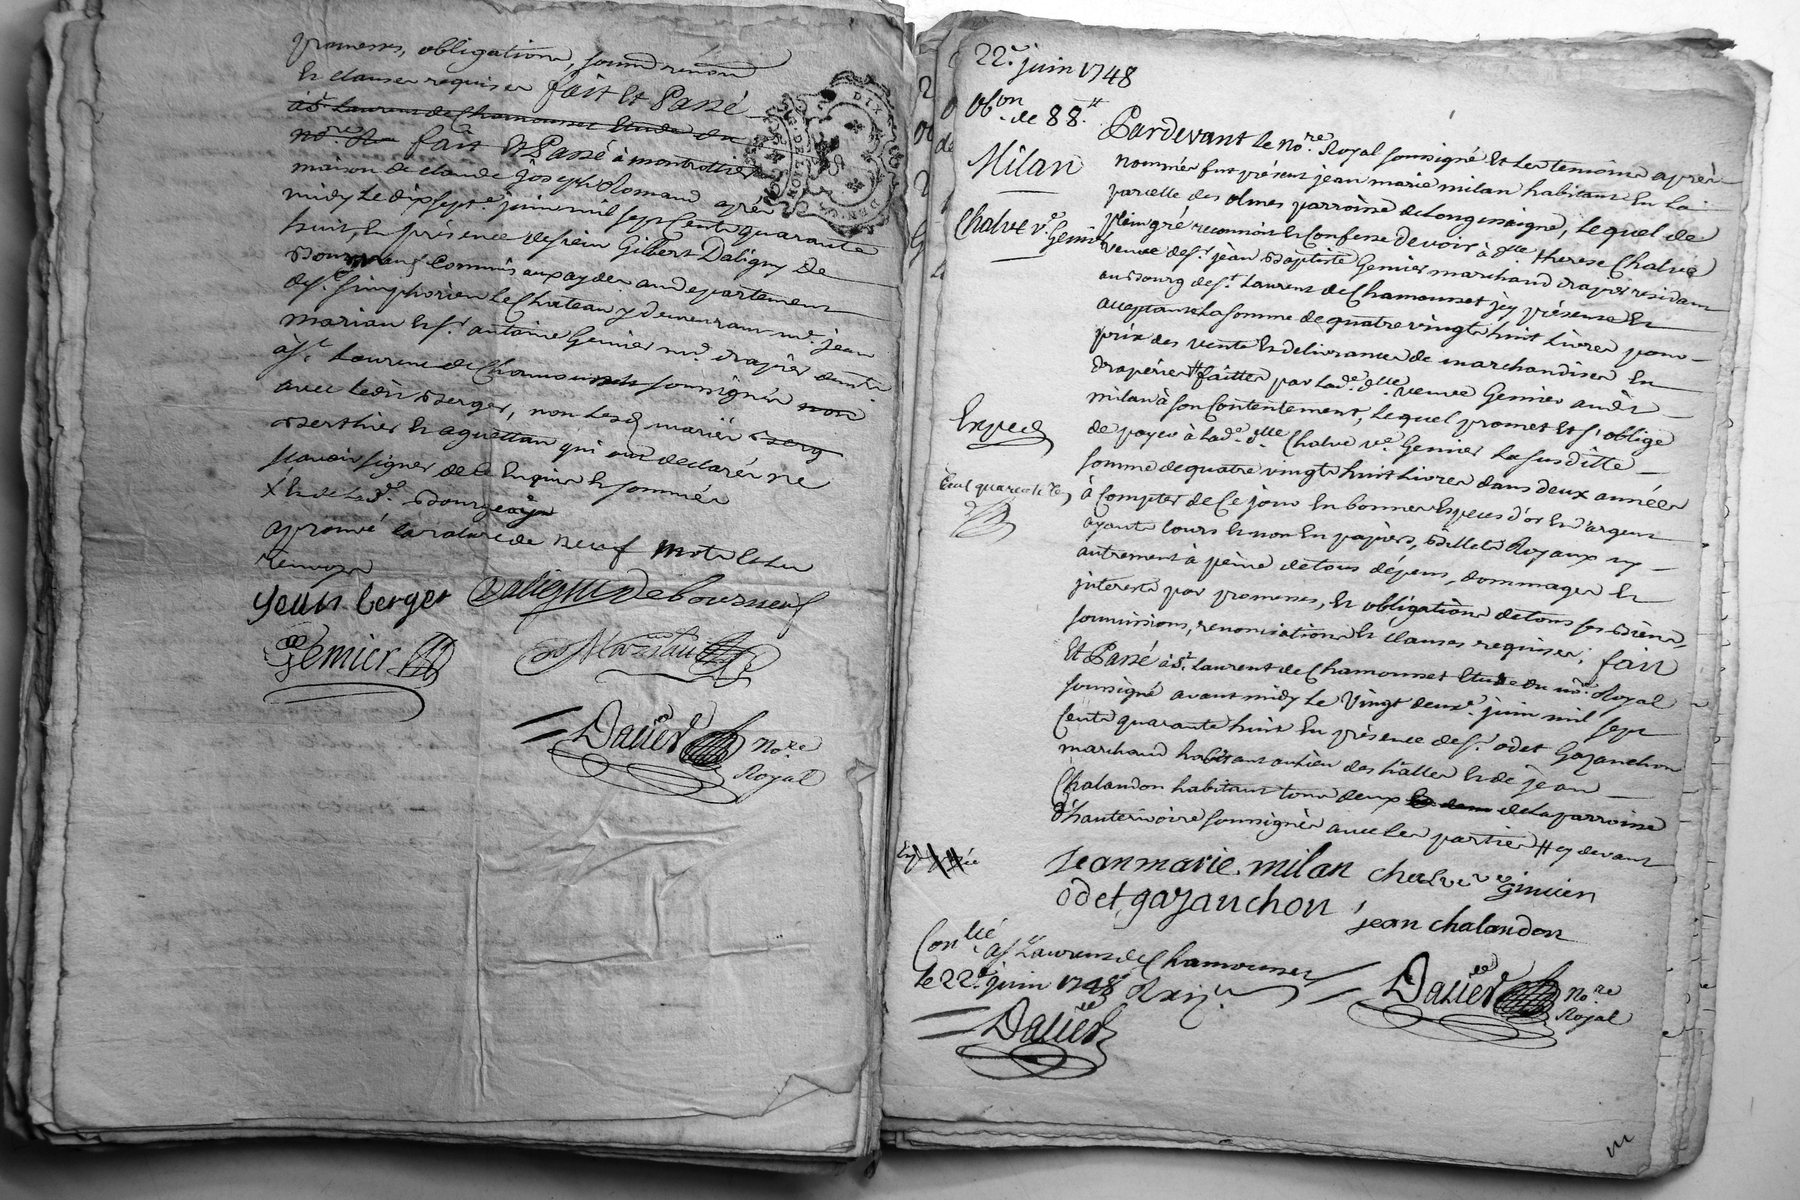 promesses, obligations, soumissions
et clauses requises fait et Passé
à St Laurent de Chamousset Etude du
nore Ro fait et Passé à montrottier
maison de claude joseph Romand après
midy le dix sept.e juin mil sept Cents quarante
huit, en présence de sieur Gilbert Daligny De
Bourneuf Commis aux aydes au departement
de St. Simphorien le Chateau y demeurant, mr. jean
marian et sr. antoine Genier md drapier dud.
St Laurent de Chamousset soussignés non
avec led. Berger, non les d. mariés Berg
Berthier et aguettan qui ont declarés ne
scavoir signer de ce Enquis et sommés
X et de lad. Bourgeoise
aprouvé la rature de neuf mots et les
renvoys
jean berger Daligny De bourneuf
Genier Marian
Dalier nore
Royal
DIX
DEN.
G. DE LION
22.e juin 1748
Obon. de 88.tt
Milan
Chalve ve. Genier
Expedé
Controlé
Pardevant le nore. Royal soussigné et les temoins après
nommés fut présent jean marie milan habitant en la
parcelle des olmes parroisse de Longessaigne, Lequel de
plein gré reconnoit et Confesse devoir à dlle therese Chalve
veuve de sr. jean Baptiste Genier marchand drapier residante
au Bourg de St. Laurent de Chamousset jcy présente et
acceptante la somme de quatre vingts huit Livres pour
prix des vente et delivrance de marchandises En
draperies # faittes par lade. dlle. veuve Genier audit
milan à son Contentement, Lequel promet et s'oblige
de payer à lade. dlle Chalve ve. Genier la susditte
somme de quatre vingts huit Livres dans deux années
à Compter de Ce jour En bonnes Especes d'or et d'argent
ayants Cours et non En papiers, Billets Royaux ny
autrement à peine de tous dépens, dommages et
interests par promesses, et obligations de tous ses Biens,
soumissions, renonciations et clauses requises; fait
Et Passé à St. Laurent de Chamousset Etude du nore. Royal
soussigné avant midy le Vingt deuxe. juin mil sept
Cents quarante huit En présence de sr. odet Gazanchon
marchand habitant au lieu des halles et de jean
Chalandon habitant tous deux de la parroisse
d'hauterivoire soussignés avec les parties # cy devant
jean marie milan chalve ve ginier
odet gazanchon jean chalandon
Conlé à St Laurent de Chamousset
le 22.e juin 1748
Dalier
Dalier nore
Royal